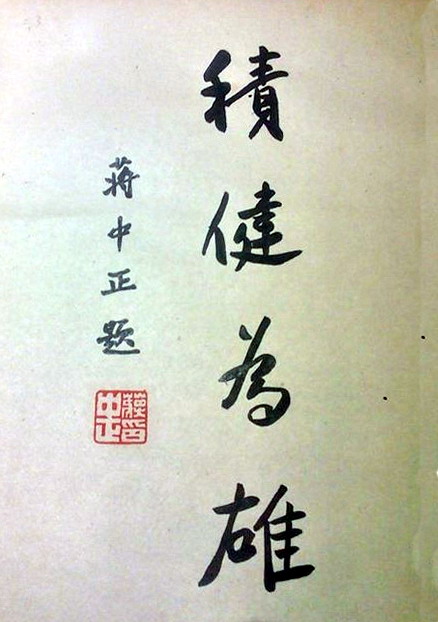 積健為雄
蔣中正題
蔣中正印